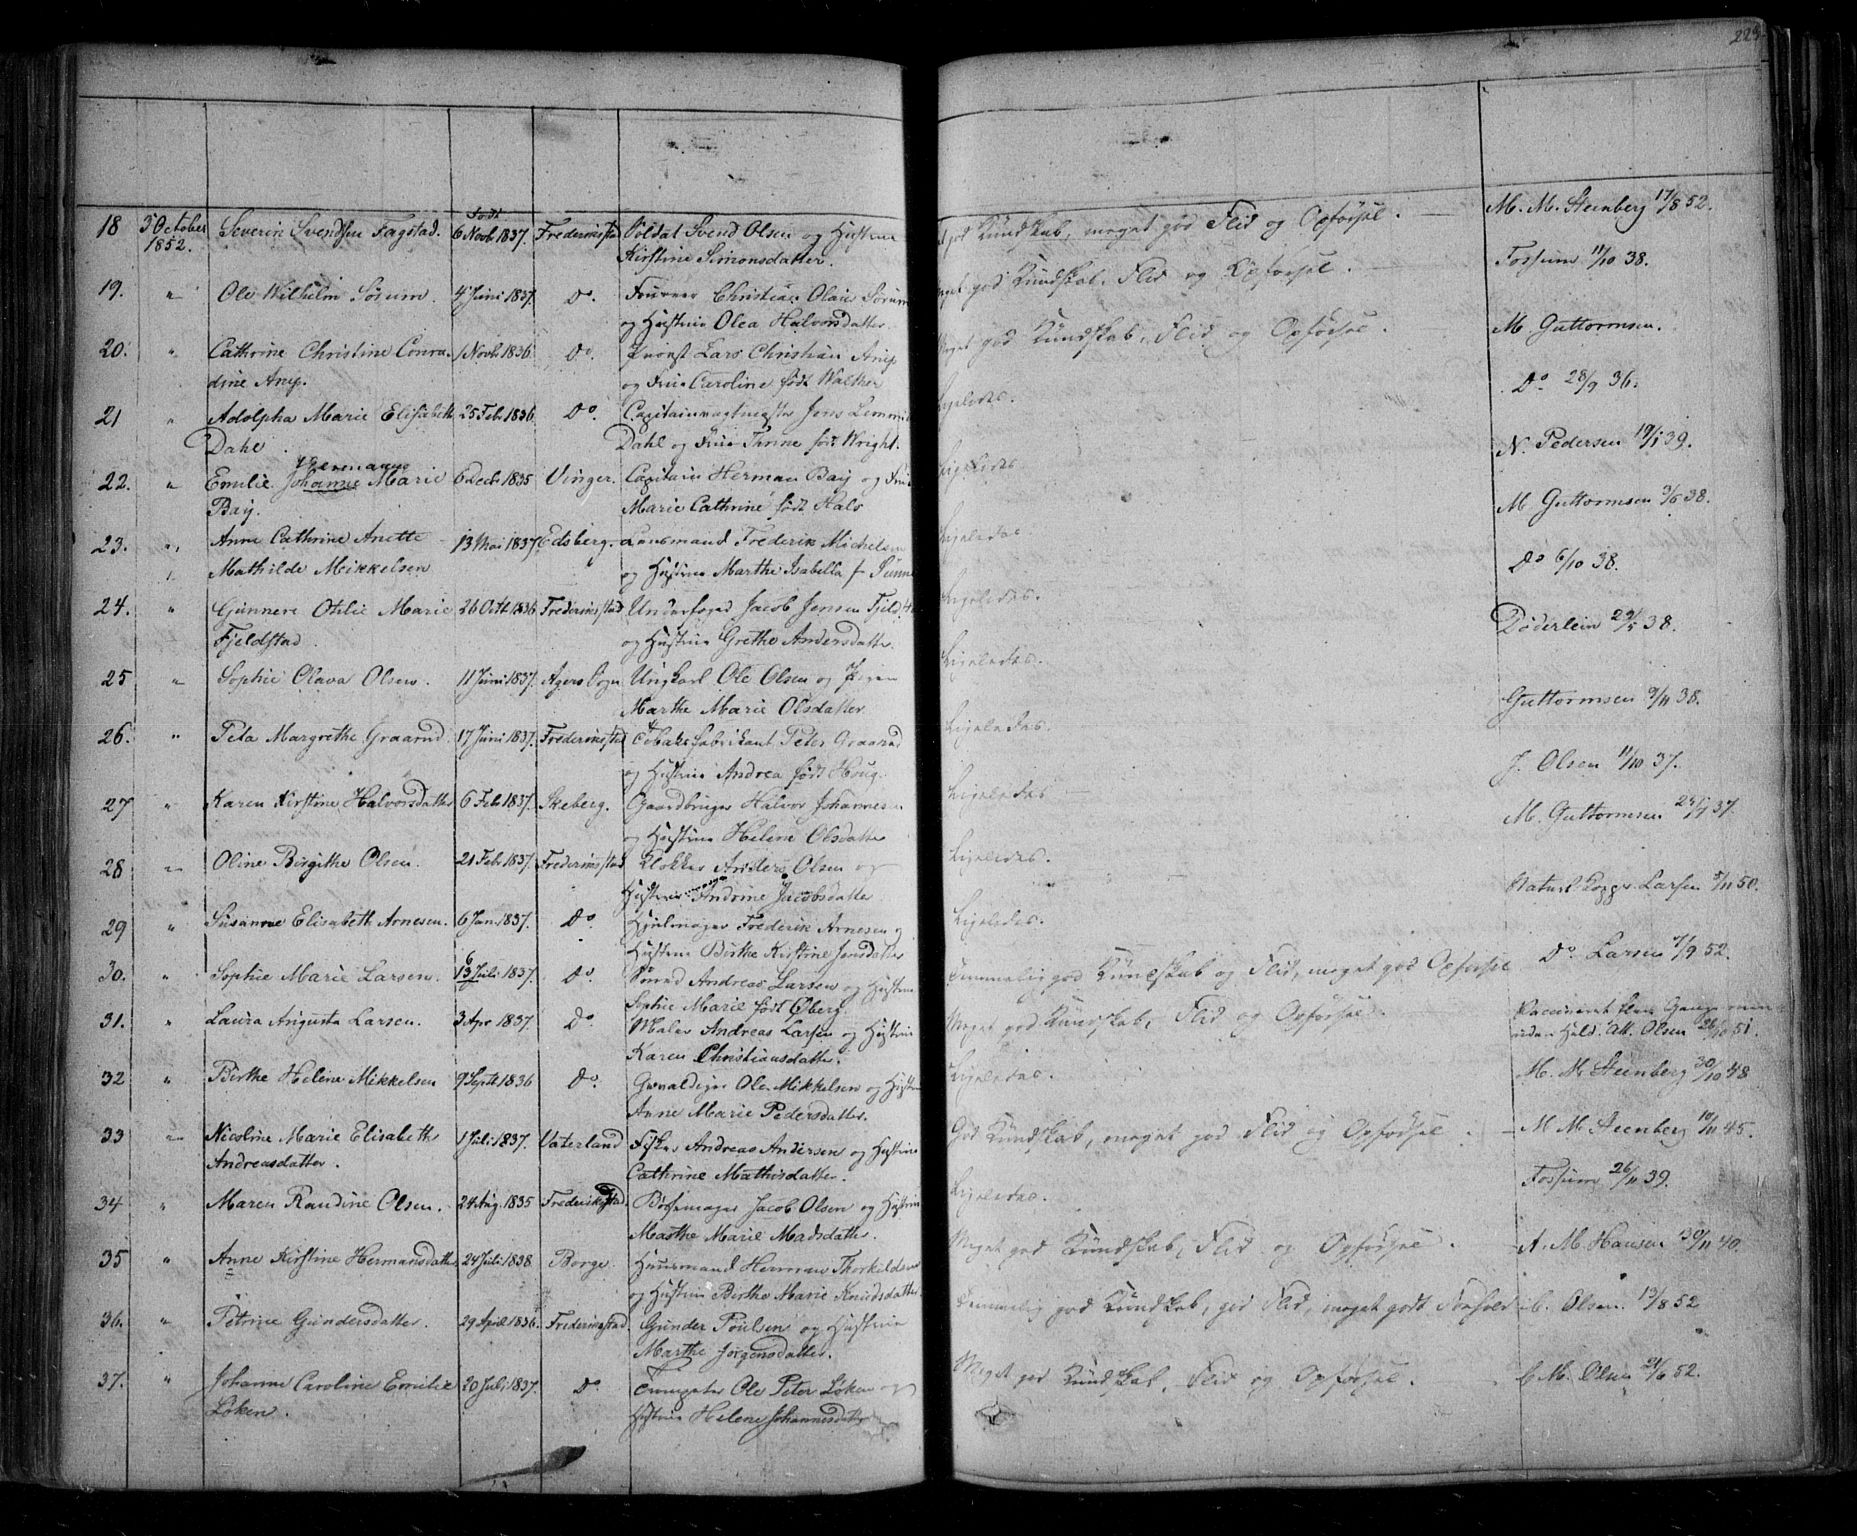 223.
18 3 October Severin Svendsen Fagstad. født 6 Novb 1837. Frederiksstad Soldat Svend Olsen og Hustrue god Kundskab, meget god Flid og Opførsel. M. M. Steenberg 17/8 52.
1852. Kirstine Simonsdatter.
19. " Ole Wilhelm Sørum. 4 Juni 1837. Do. Christian Olaus Sørum meget god Kundskab, Flid og Opførsel. Fossum 11/10 38.
og Hustrue Olea Halvorsdatter
20. " Cathrine Christine Conra- 1 Novb. 1836. Do. Provst Lars Christian Arup Meget god Kundskab, Flid og Opførsel. M. Guttormsen.
dine Arup. og Frue Caroline født Walker
21 " Adolpha Marie Elisabeth 25 Feb. 1836. Do. Jens Lemmich Ligeledes. Do. 28/9 36.
Dahl. Dahl og Frue Thrine født Wright.
22. " Emilie Johanne Marie 6 Decb. 1835 Vinger. Capitain Herman Bay og Frue Ligeledes N. Pedersen 19/1 39.
Bay. Marie Cathrine født Hals
23. " Anne Cathrine Anette 13 Mai 1837 Edsberg. Lensmand Frederik Michelsen Ligeledes M Guttormsen 3/6 38.
Mathilde Mikkelsen og Hustrue Marthe Isabella f.
24. " Gunnere Otilie Marie 26 Octb. 1836 Frederiksstad Underfoged Jacob Jensen Ligeledes. Do 6/10 38.
Fjeldstad. og Hustrue Grethe Andersdatter
25 " Sophie Olava Olsen. 11 Juni 1837. Agers Sogn Ungkarl Ole Olsen og Pigen Ligeledes. Döderlein 29/5 38.
Marthe Marie Olsdatter
26. " Peta Margrethe Graarud. 17 Juni 1837. Frederiksstad Tobaksfabrikant Peter Graarud Ligeledes Guttormsen 9/11 38.
og Hustrue Andrea født Houg.
27 " Karen Kirstine Halvorsdatter 6 Feb. 1837. Skeberg. Gaardbruger Halvor Johannesen Ligeledes J. Olsen 11/10 37.
og Hustrue Helene Olsdatter
28 " Oline Birgithe Olsen. 21 Feb. 1837. Frederiksstad Klokker Anders Olsen og Ligeledes. M. Guttormsen 37.
Hustrue Andrine Jacobsdatter
29 " Susanne Elisabeth Arnesen. 6 Jan. 1837. Do Hjulmager Frederik Arnesen og Ligeledes. Naturl. Kopper Larsen 5/11 50.
Hustrue Birthe Kirstine Jensdatter
30. " Sophie Marie Larsen. 6 13 Juli 1837. Do. Andreas Larsen og Hustrue Temmelig god Kundskab og Flid, meget god Opførsel Do. Larsen 7/9 52.
Sophie Marie født Øberg.
31. " Laura Augusta Larsen. 3 Apr 1837. Do. Maler Andreas Larsen og Hustrue Meget god Kundskab, Flid og Opførsel. Vaccineret flere Gange
Karen Christiansdatter. uden Held. Att. Olsen 26/10 51.
32 " Birthe Helene Mikkelsen 9 Septb. 1836 Do. Gevaldiger Ole Mikkelsen og Hustrue Ligeledes. M. M. Steenberg 30/10 48
Anne Marie Pedersdatter.
33 " Nicoline Marie Elisabeth 1 Juli 1837. Vaterland Fisker Andreas Andersen og Hustrue God Kundskab, meget god Flid og Opførsel. M M Steenberg 10/11 45.
Andreasdatter. Cathrine Mathisdatter.
34 " Maren Randine Olsen. 24 Aug. 1835 Frederiksstad. Bøssemager Jacob Olsen og Hustrue Ligeledes. Fossum 26/11 39.
Marthe Marie Madsdatter.
35 " Anne Kirstine Hermansdatter 24 Juli 1838. Borge. Huusmand Herman Thorkildsen Meget god Kundskab, Flid og Opførsel. A. M. Hansen 30/11 40.
og Hustrue Birthe Marie Knudsdatter
36. " Petrine Gundersdatter. 29 April 1836. Frederiksstad. Gunder Poulsen og Hustrue Temmelig god Kundskab, god Flid, meget godt Forhold C. Olsen. 13/8 52
Marthe Jørgensdatter.
37. " Johanne Caroline Emilie 20 Juli 1837. Do. Ole Peter Løken og Meget god Kundskab, Flid og Opførsel. C. M. Olsen 21/6 52.
Løken. Hustrue Helene Johannesdatter